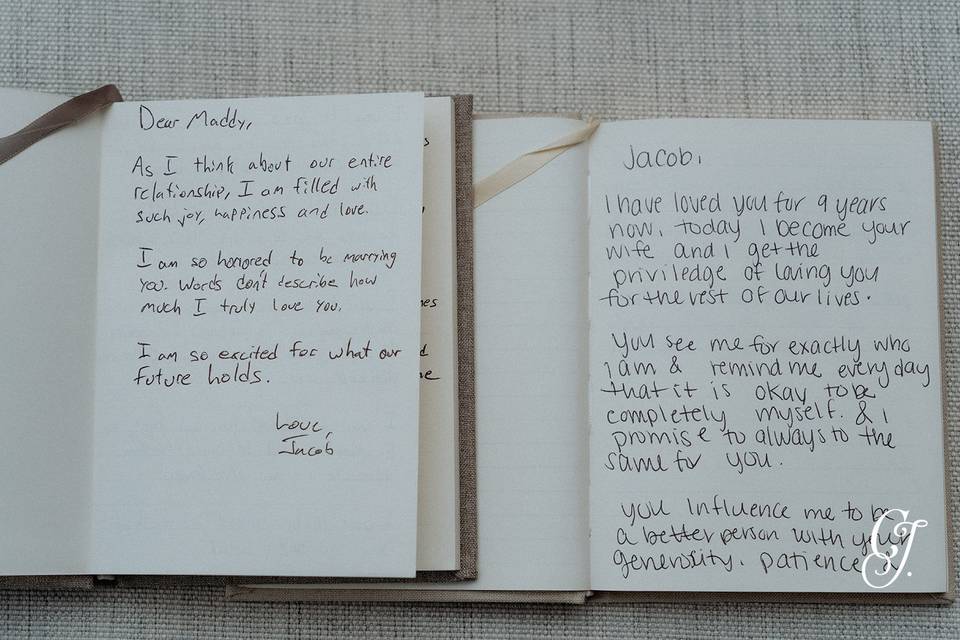 Dear Maddy,
As I think about our entire
relationship, I am filled with
such joy, happiness and love.
I am so honored to be marrying
you. Words don't describe how
much I truly love you.
I am so excited for what our
future holds.
Love,
Jacob
Jacob,
I have loved you for 9 years
now, today I become your
wife and I get the
priviledge of loving you
for the rest of our lives.
You see me for exactly who
I am & remind me everyday
that it is okay to be
completely myself. & I
promise to always to the
same for you.
you influence me to be
a better person with your
generosity, patience
GJ.